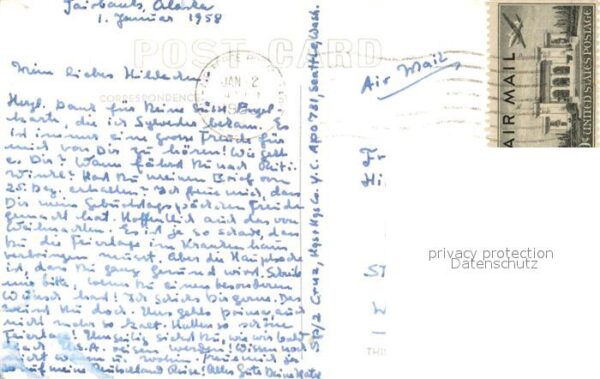 Fairbanks, Alaska
1. Januar 1958
POST CARD
JAN 2
CORRESPONDENCE
Air Mail
AIR MAIL
UNITED STATES POSTAGE
Mein liebes Hildchen!
Herzl. Dank für Deine
karte die ich Sylvester bekam. Es
ist immer eine grosse Freude für
mich von Dir zu hören! Wie geht
es Dir? Wann fährst Du nach
Hast Du meinen Brief vom
25. Dez. erhalten? Ich freue mich, dass
Dir mein Geburtstagspäckchen Freude
gemacht hat. Hoffentlich auch das von
Weihnachten. Es ist je so schade, dass
Du die Feiertage im Krankenhaus
verbringen musst. Aber die Hauptsache
ist, dass Du ganz gesund wirst. Schreib
uns bitte, wenn Du einen besonderen
Wunsch hast! Ich schicks Dir gerne. Das
weisst Du doch. Uns gehts prima, auch
nicht mehr so kalt. Hatten so schöne
Feiertage!
nach U.S.A. reisen werden! Wissen noch
nicht wann u. wohin. Freue mich ja
so auf meine Deutschland Reise! Alles Gute Deine Kate
SP/2 Cruz, Hqs+Hqs Co. Y.C. APO 731, Seattle, Wash.
Fr
Hi
ST
TH
privacy protection
Datenschutz